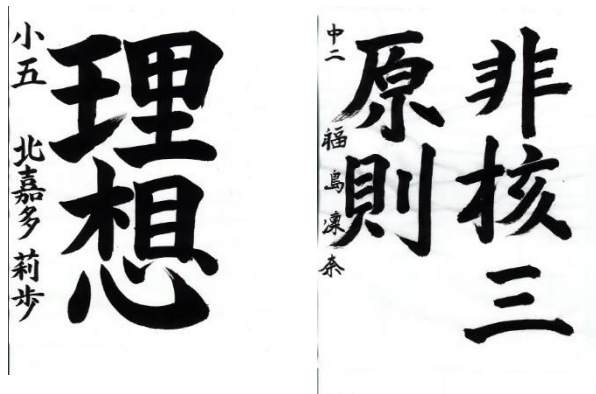 理想
小五 北嘉多 莉歩
非核三
原則
中二 福島 凜奈